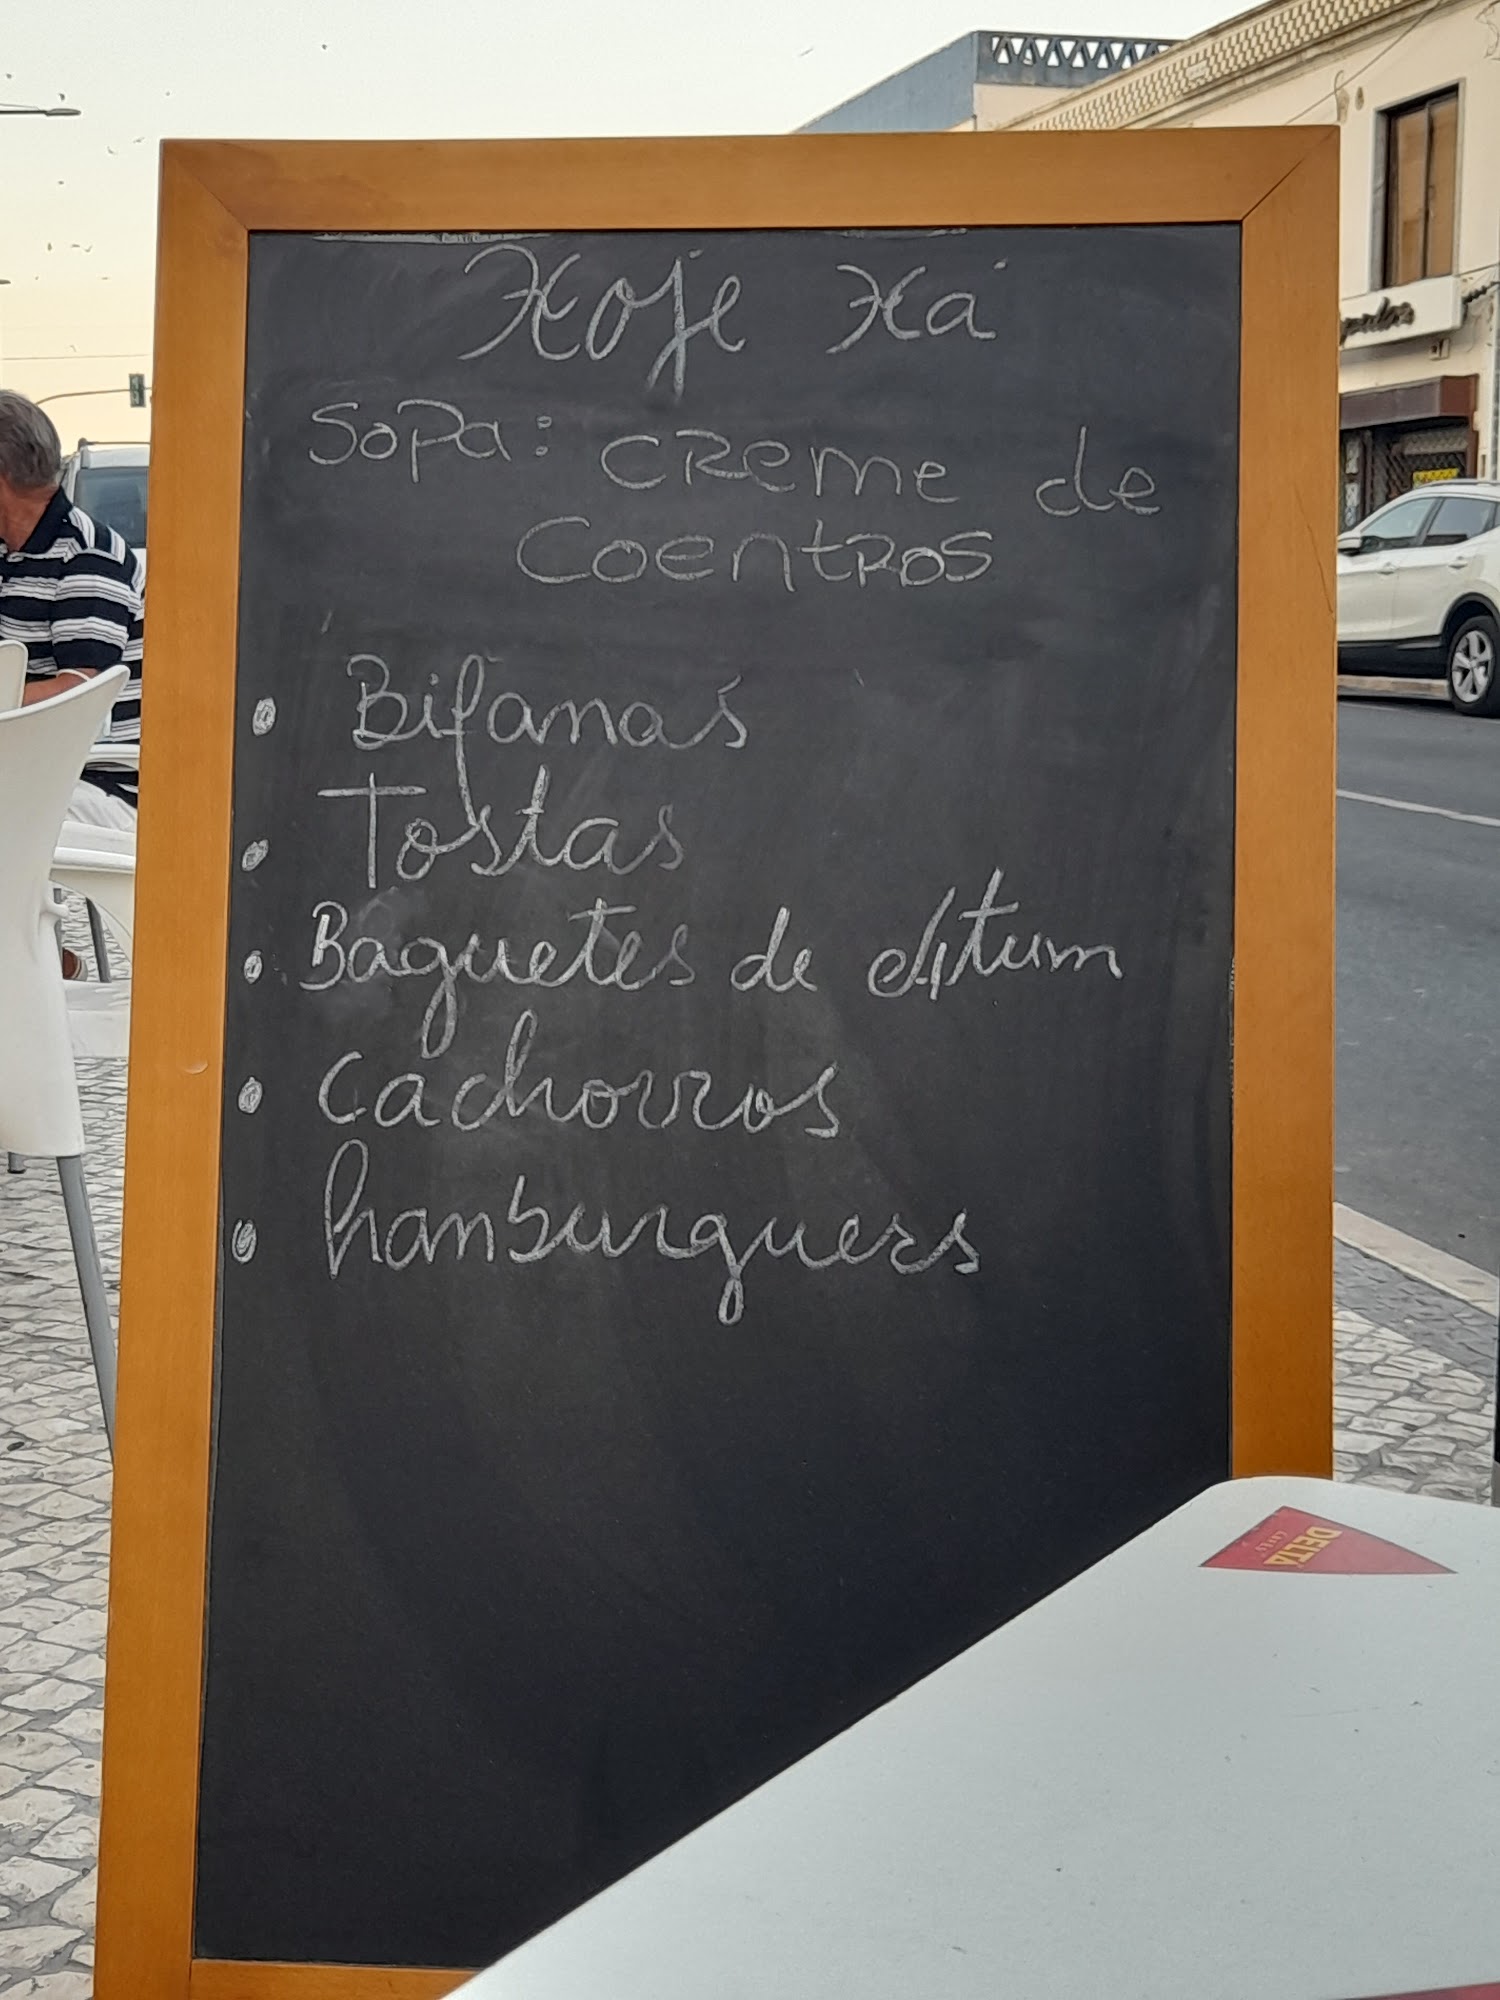 Hoje Há
Sopa: Creme de
Coentros
• Bifanas
• Tostas
• Baguetes de Atum
• Cachorros
• hanburguers
DELTA
CAFÉS